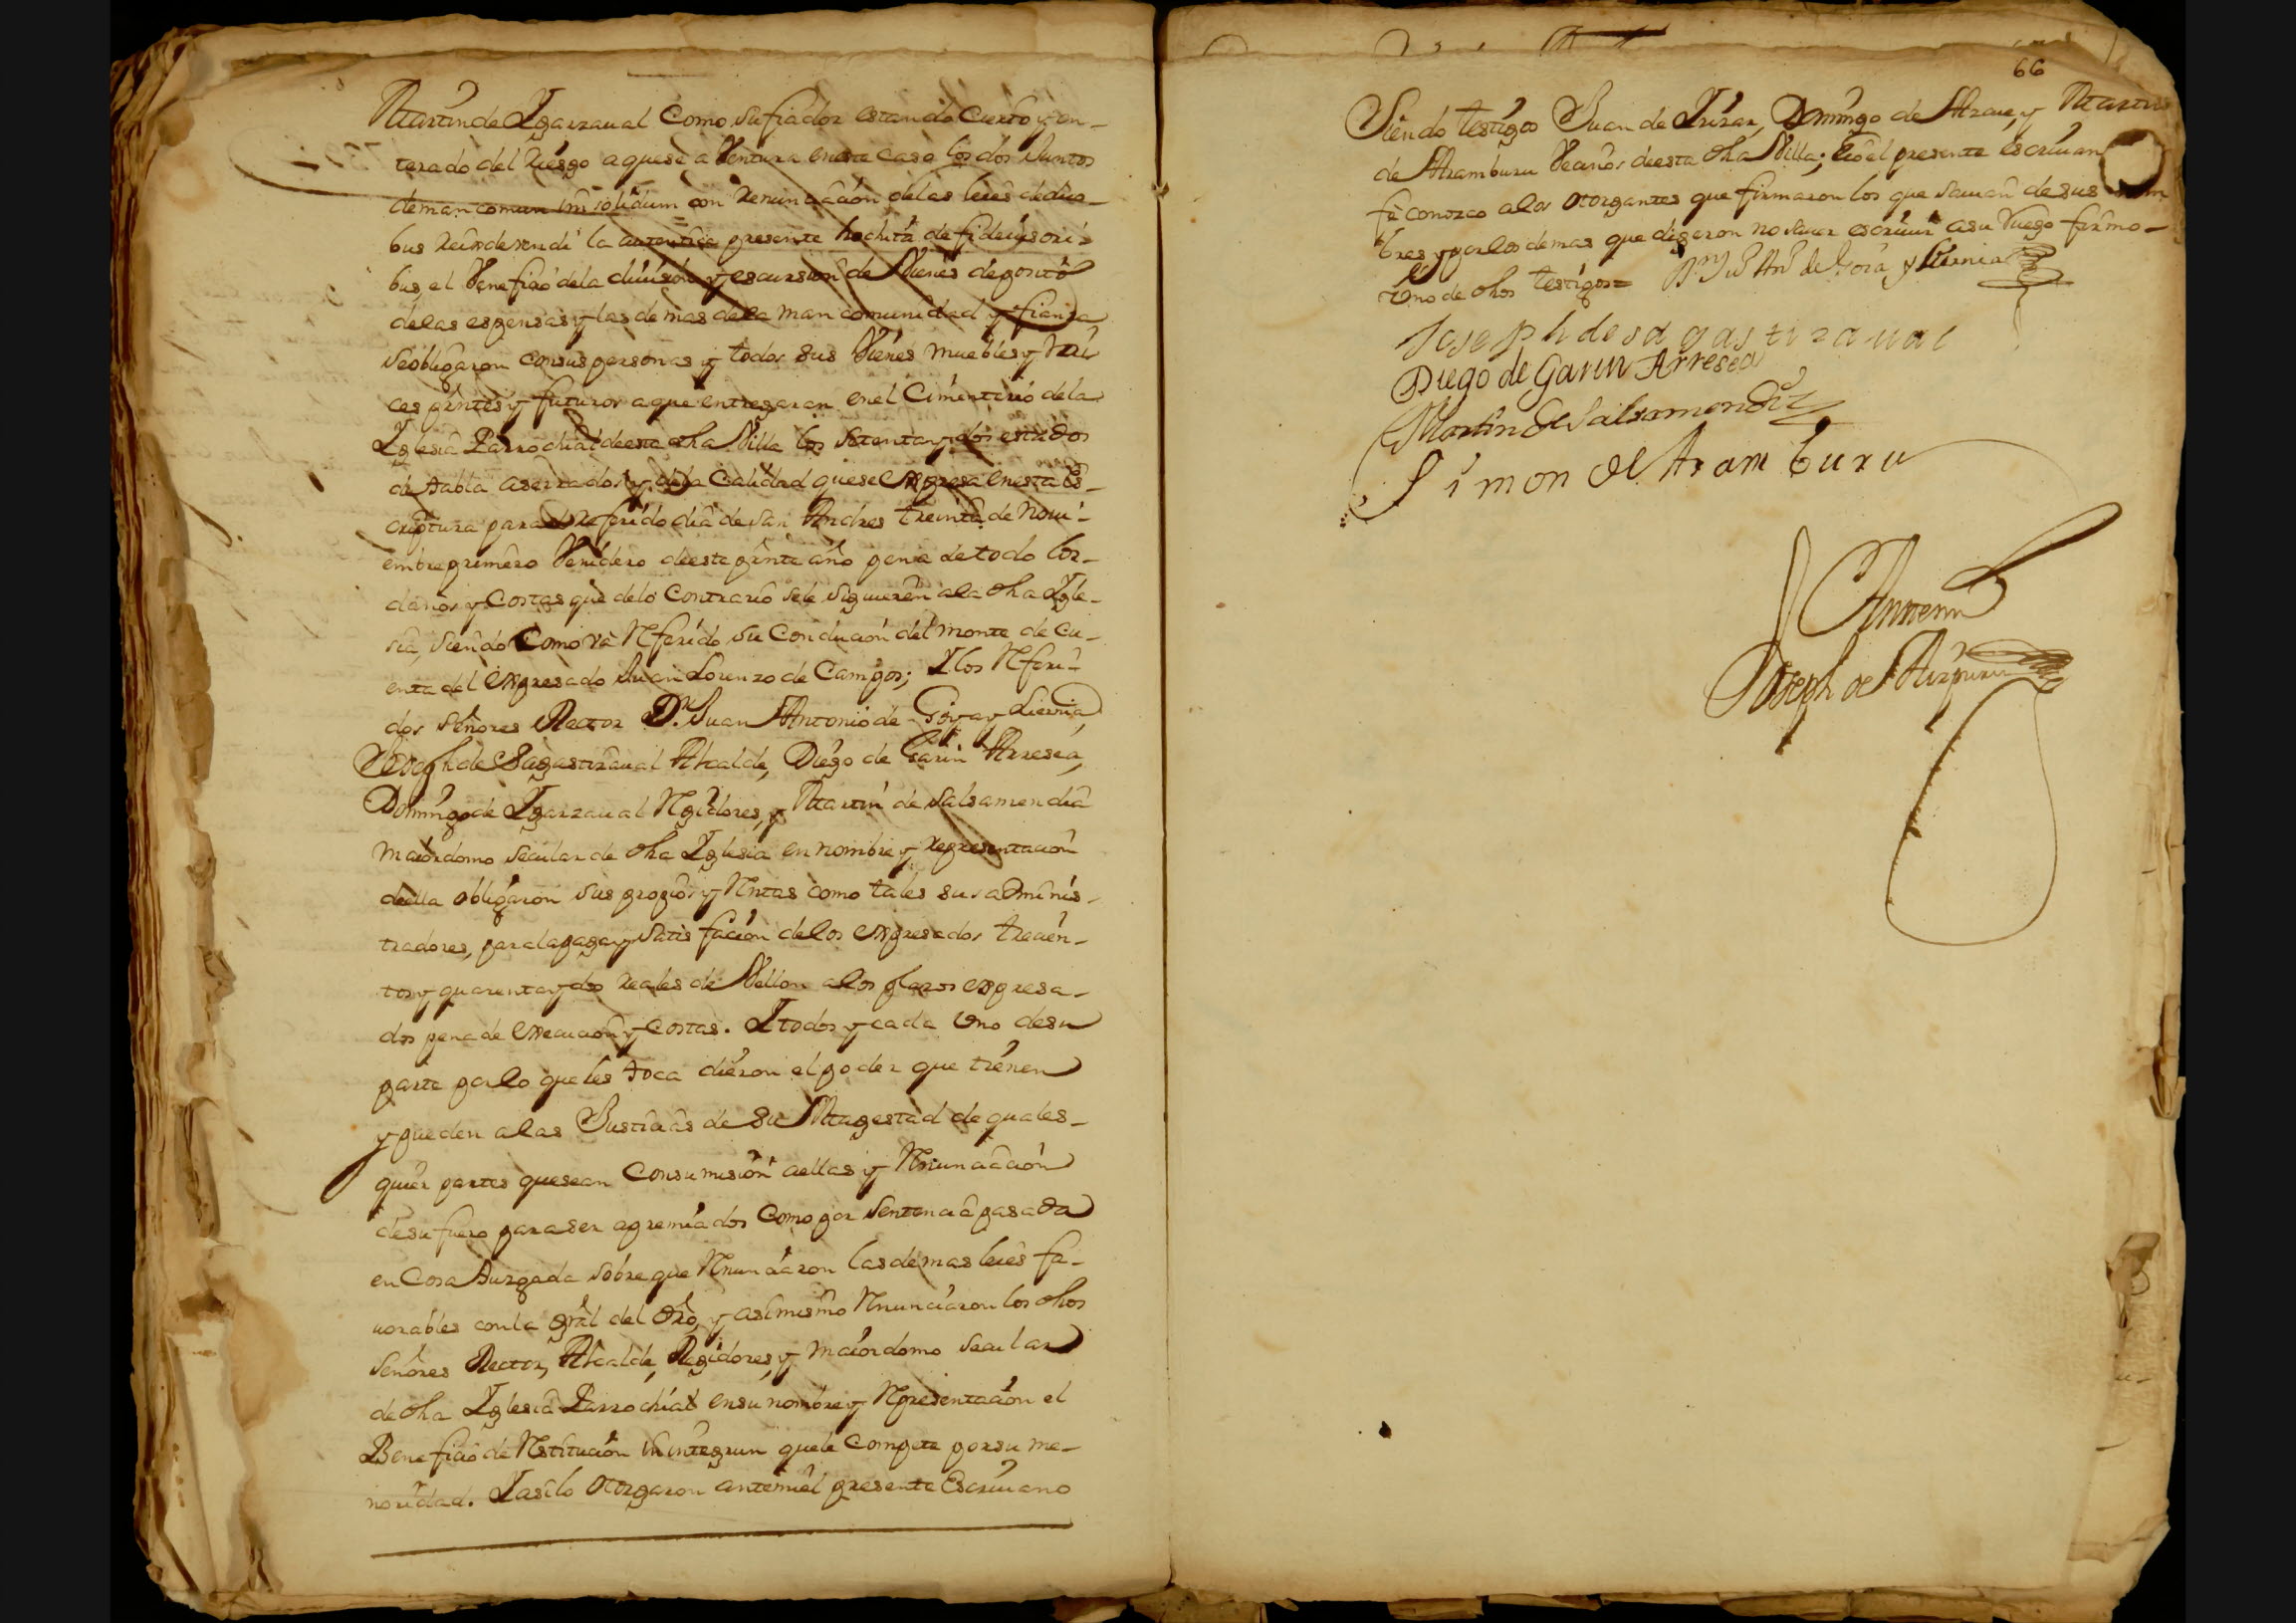 Martin de Ygarzaual como su fiador estando cierto y en-
terado del riesgo a que se a Ventura en este caso los dos Juntos
de mancomun in solidum con renunciaçión de las leies de duo-
bus reis de vendi la autentica presente hochita de fideiusori-
bus, el Venefizio de la diuision y escursion de Vienes deposito
de las espensas y las demas de la mancomunidad y fianza
se obligaron con sus personas y todos sus Vienes muebles y rai
ces presntes y futuros a que entregaran en el Cimenterio de la
Yglesia Parrochial de esta dha Villa los setenta y dos estados
de tabla aserrados y de la Calidad que se expresa en esta Es-
criptura para el referido dia de San Andres treinta de Noui-
embre primero Venidero de este presnte año pena de todo los
daños y Costas que de lo Contrario se le siguieren a la dha Ygle-
sia, siendo Como va Referido su Conducion del monte de cu-
enta del expresado Juan Lorenzo de Campos; Y los Referi-
dos Señores Rector Dn. Juan Antonio de Goya y Liernia
Joseph de Sagastizaual Alcalde, Diego de Garin Arresea,
Domingo de Ygarzaual Regidores, y Martin de Salsamendia
maiordomo secular de dha Yglesia en nombre y representacion
de ella obligaron sus propios y Rentas como tales sus adminis-
tradores, para la paga y satisfacion de los expresados trecien-
tos y quarenta y dos reales de Vellon a los plazos expresa-
dos pena de execucion y costas. Y todos y cada Uno de su
parte por lo que les toca dieron el poder que tienen
y pueden a las Justicias de su Magestad de quales-
quier partes que sean Con sumision a ellas y Renunciacion
de su fuero para ser apremiados Como por Sentencia pasada
en Cosa Juzgada sobre que Renunciaron las demas leies fa-
uorables con la gral del dro, y asi mismo Renunciaron los dhos
Señores Rector, Alcalde, Regidores, y maiordomo secular
de dha Yglesia Parrochial en su nombre y Representacion el
Beneficio de Restitucion in integrun que le Compete por su me-
noridad. Y asi lo otorgaron ante mi el presente Escriuano
66
Siendo testigos Juan de Yrizar, Domingo de Arzue, y Martin
de Aramburu Vecinos de esta dha Villa; e io el presente escriuan
fe conozco a los otorgantes que firmaron los que sauian de sus nom
bres y por los demas que digeron no sauer escriuir a su Ruego firmo
Uno de dhos testigos=
Joseph de sagastizaual
Diego de Garin Arresea
Martin de Salsamendi
Simon de Aramburu
Antemi
Joseph de Aizpuru